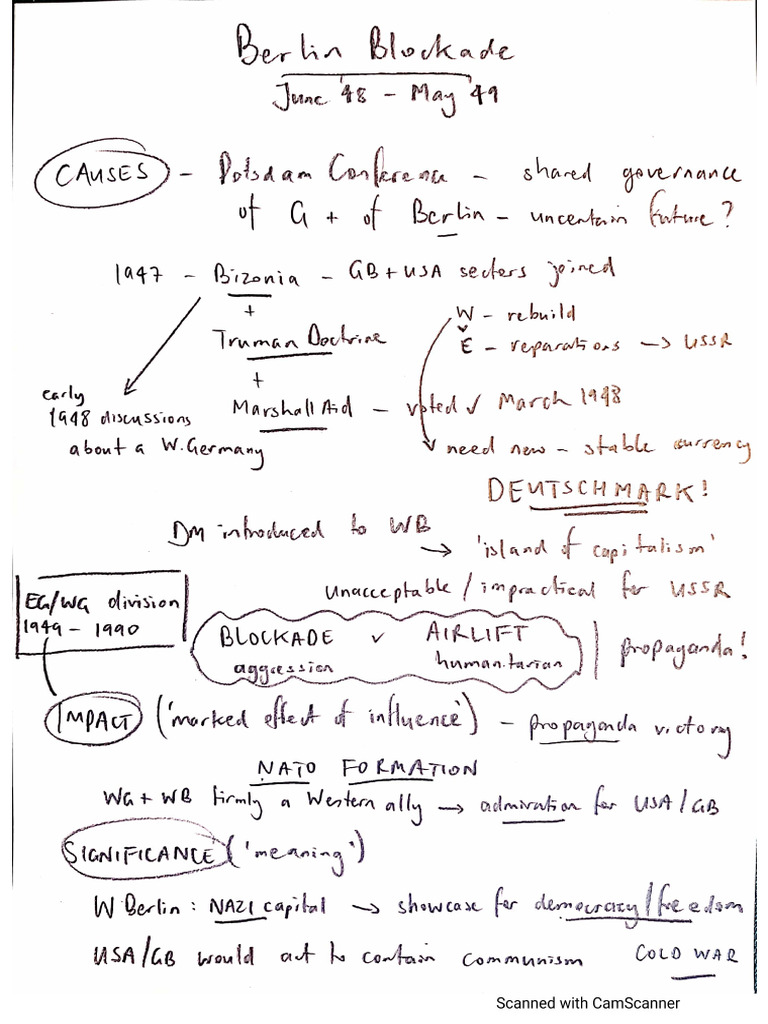 Berlin Blockade
June '48 - May '49
CAUSES - Potsdam Conference - shared governance
of G + of Berlin - uncertain future?
1947 - Bizonia - GB + USA sectors joined
+
W - rebuild
v
Truman Doctrine
E - reparations → USSR
+
early
1948 discussions
about a W. Germany
Marshall Aid - voted ✓ March 1948
need new - stable currency
DEUTSCHMARK!
DM introduced to WB
→ 'island of capitalism'
Unacceptable / impractical for USSR
EG/WG division
1949 - 1990
BLOCKADE v AIRLIFT
aggression humanitarian
propaganda!
IMPACT ('marked effect of influence') - propaganda victory
NATO FORMATION
WG + WB firmly a Western ally → admiration for USA/GB
SIGNIFICANCE ('meaning')
W Berlin : NAZI capital → showcase for democracy/freedom
USA/GB would act to contain communism COLD WAR
Scanned with CamScanner